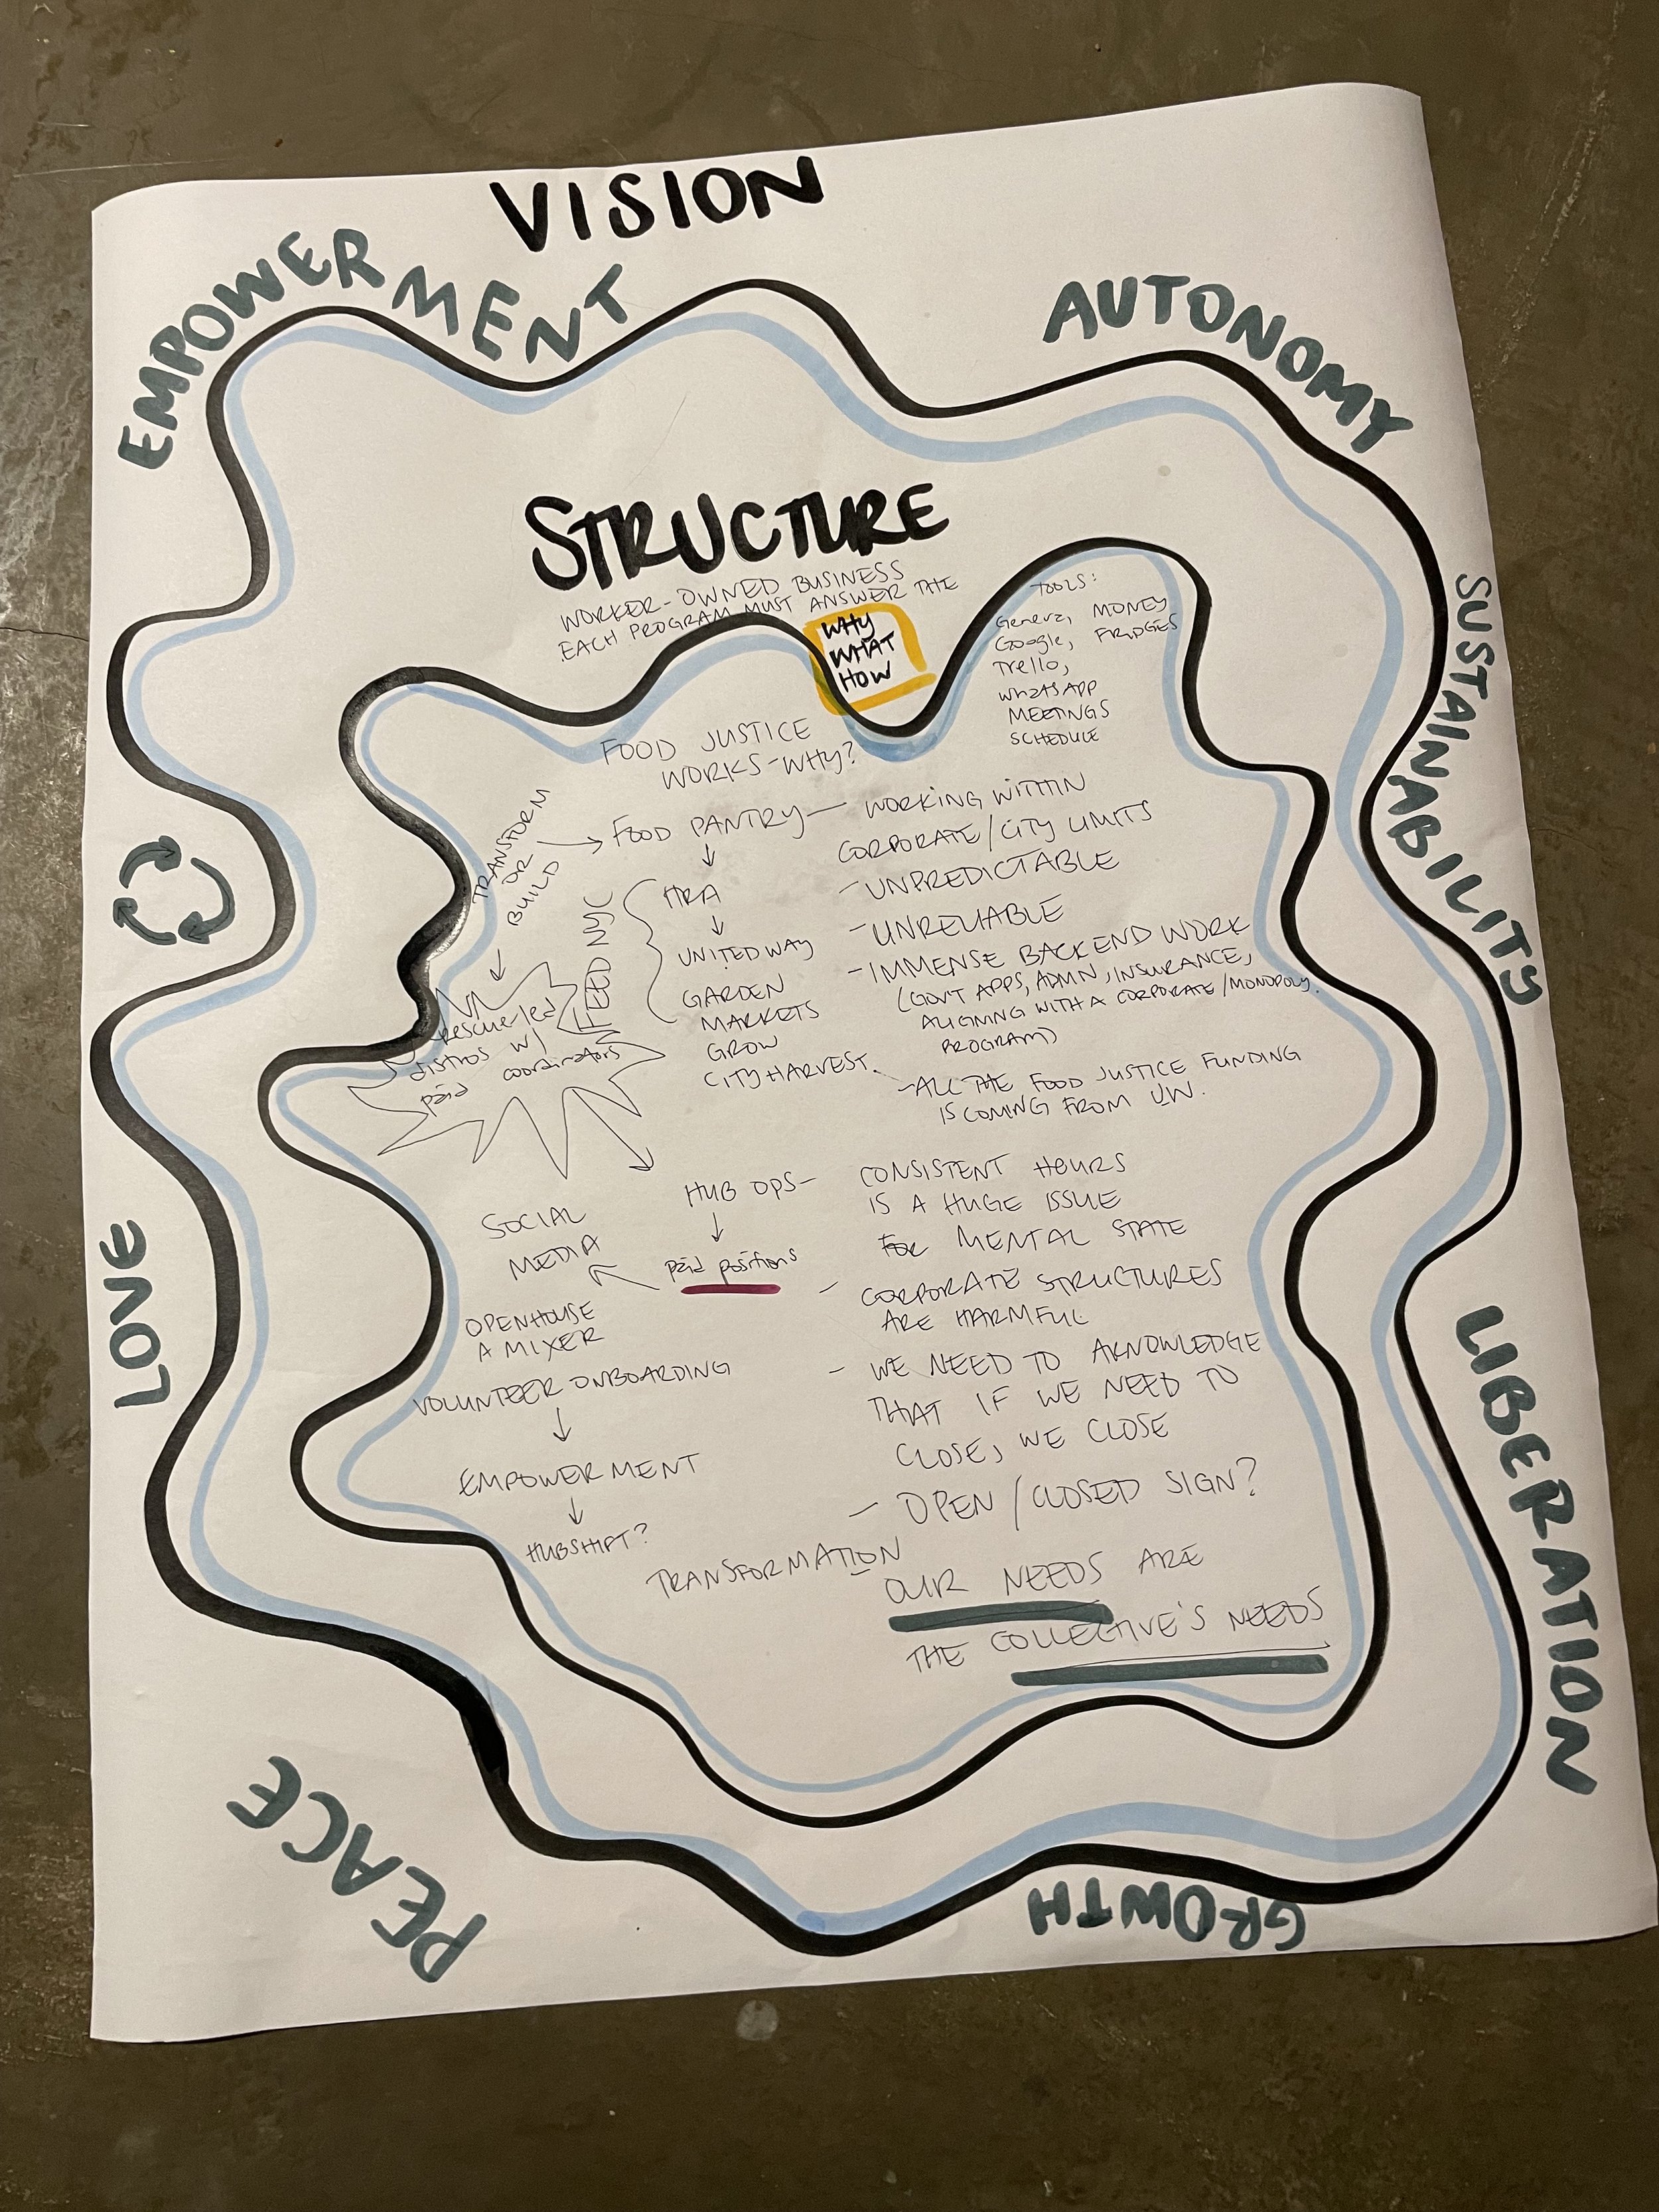 VISION
EMPOWERMENT
AUTONOMY
SUSTAINABILITY
LIBERATION
GROWTH
PEACE
LOVE
STRUCTURE
WORKER-OWNED BUSINESS
EACH PROGRAM MUST ANSWER THE
WHY
WHAT
HOW
TOOLS:
Geneva, MONEY
Google, FRIDGES
Trello,
WhatsAPP
MEETINGS
SCHEDULE
FOOD JUSTICE
WORKS-WHY?
TRANSFORM
OR
BUILD
FOOD PANTRY
HRA
UNITED WAY
GARDEN
MARKETS
GROW
CITY HARVEST
FEED NYC
rescue-led
distros w/
paid coordinators
- WORKING WITHIN
CORPORATE/CITY LIMITS
- UNPREDICTABLE
- UNRELIABLE
- IMMENSE BACKEND WORK
(GOVT APPS, ADMN, INSURANCE,
ALIGNING WITH A CORPORATE/MONOPOLY
PROGRAM)
- ALL THE FOOD JUSTICE FUNDING
IS COMING FROM U.W.
HUB OPS-
paid positions
SOCIAL
MEDIA
OPENHOUSE
A MIXER
VOLUNTEER ONBOARDING
EMPOWERMENT
HUBSHIFT?
CONSISTENT HOURS
IS A HUGE ISSUE
FOR MENTAL STATE
- CORPORATE STRUCTURES
ARE HARMFUL
- WE NEED TO AKNOWLEDGE
THAT IF WE NEED TO
CLOSE, WE CLOSE
- OPEN/CLOSED SIGN?
TRANSFORMATION
OUR NEEDS ARE
THE COLLECTIVE'S NEEDS